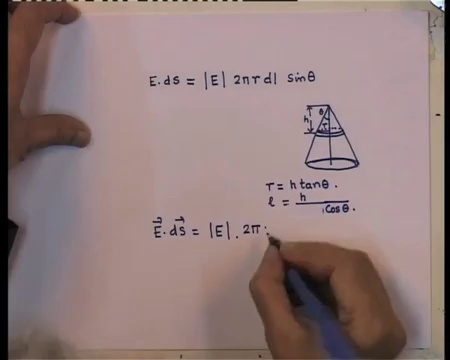 E. ds = |E| 2πr dl sinθ
h θ
r
r = h tanθ.
l = h / cosθ.
E⃗. ds⃗ = |E| . 2π